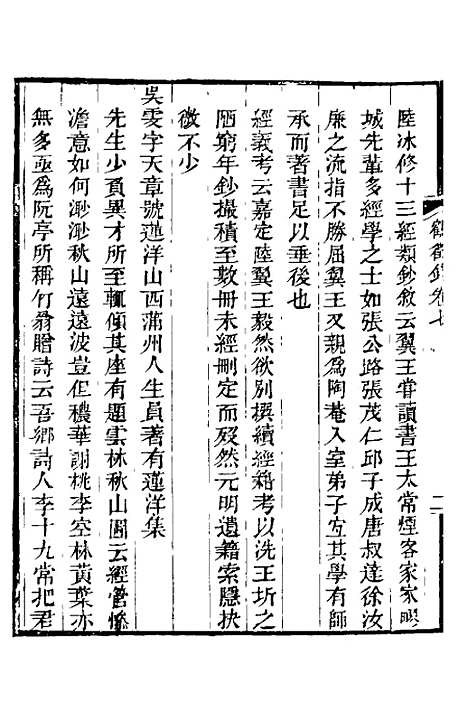 鶴徵錄卷七
二
陸冰修十三經類鈔敘云翼王嘗讀書王太常煙客家家嘐
城先輩多經學之士如張公路張茂仁邱子成唐叔達徐汝
廉之流指不勝屈翼王又親爲陶菴入室弟子宜其學有師
承而著書足以垂後也
經義考云嘉定陸翼王毅然欲別撰續經籍考以洗王圻之
陋窮年鈔撮積至數冊未經刪定而歿然元明遺籍索隱抉
微不少
吳雯字天章號蓮洋山西蒲州人生員著有蓮洋集
先生少負異才所至輒傾其座有題雲林秋山圖云經營慘
澹意如何渺渺秋山遠遠波豈但穠華謝桃李空林黃葉亦
無多亟爲阮亭所稱竹翁贈詩云吾鄉詩人李十九常把君